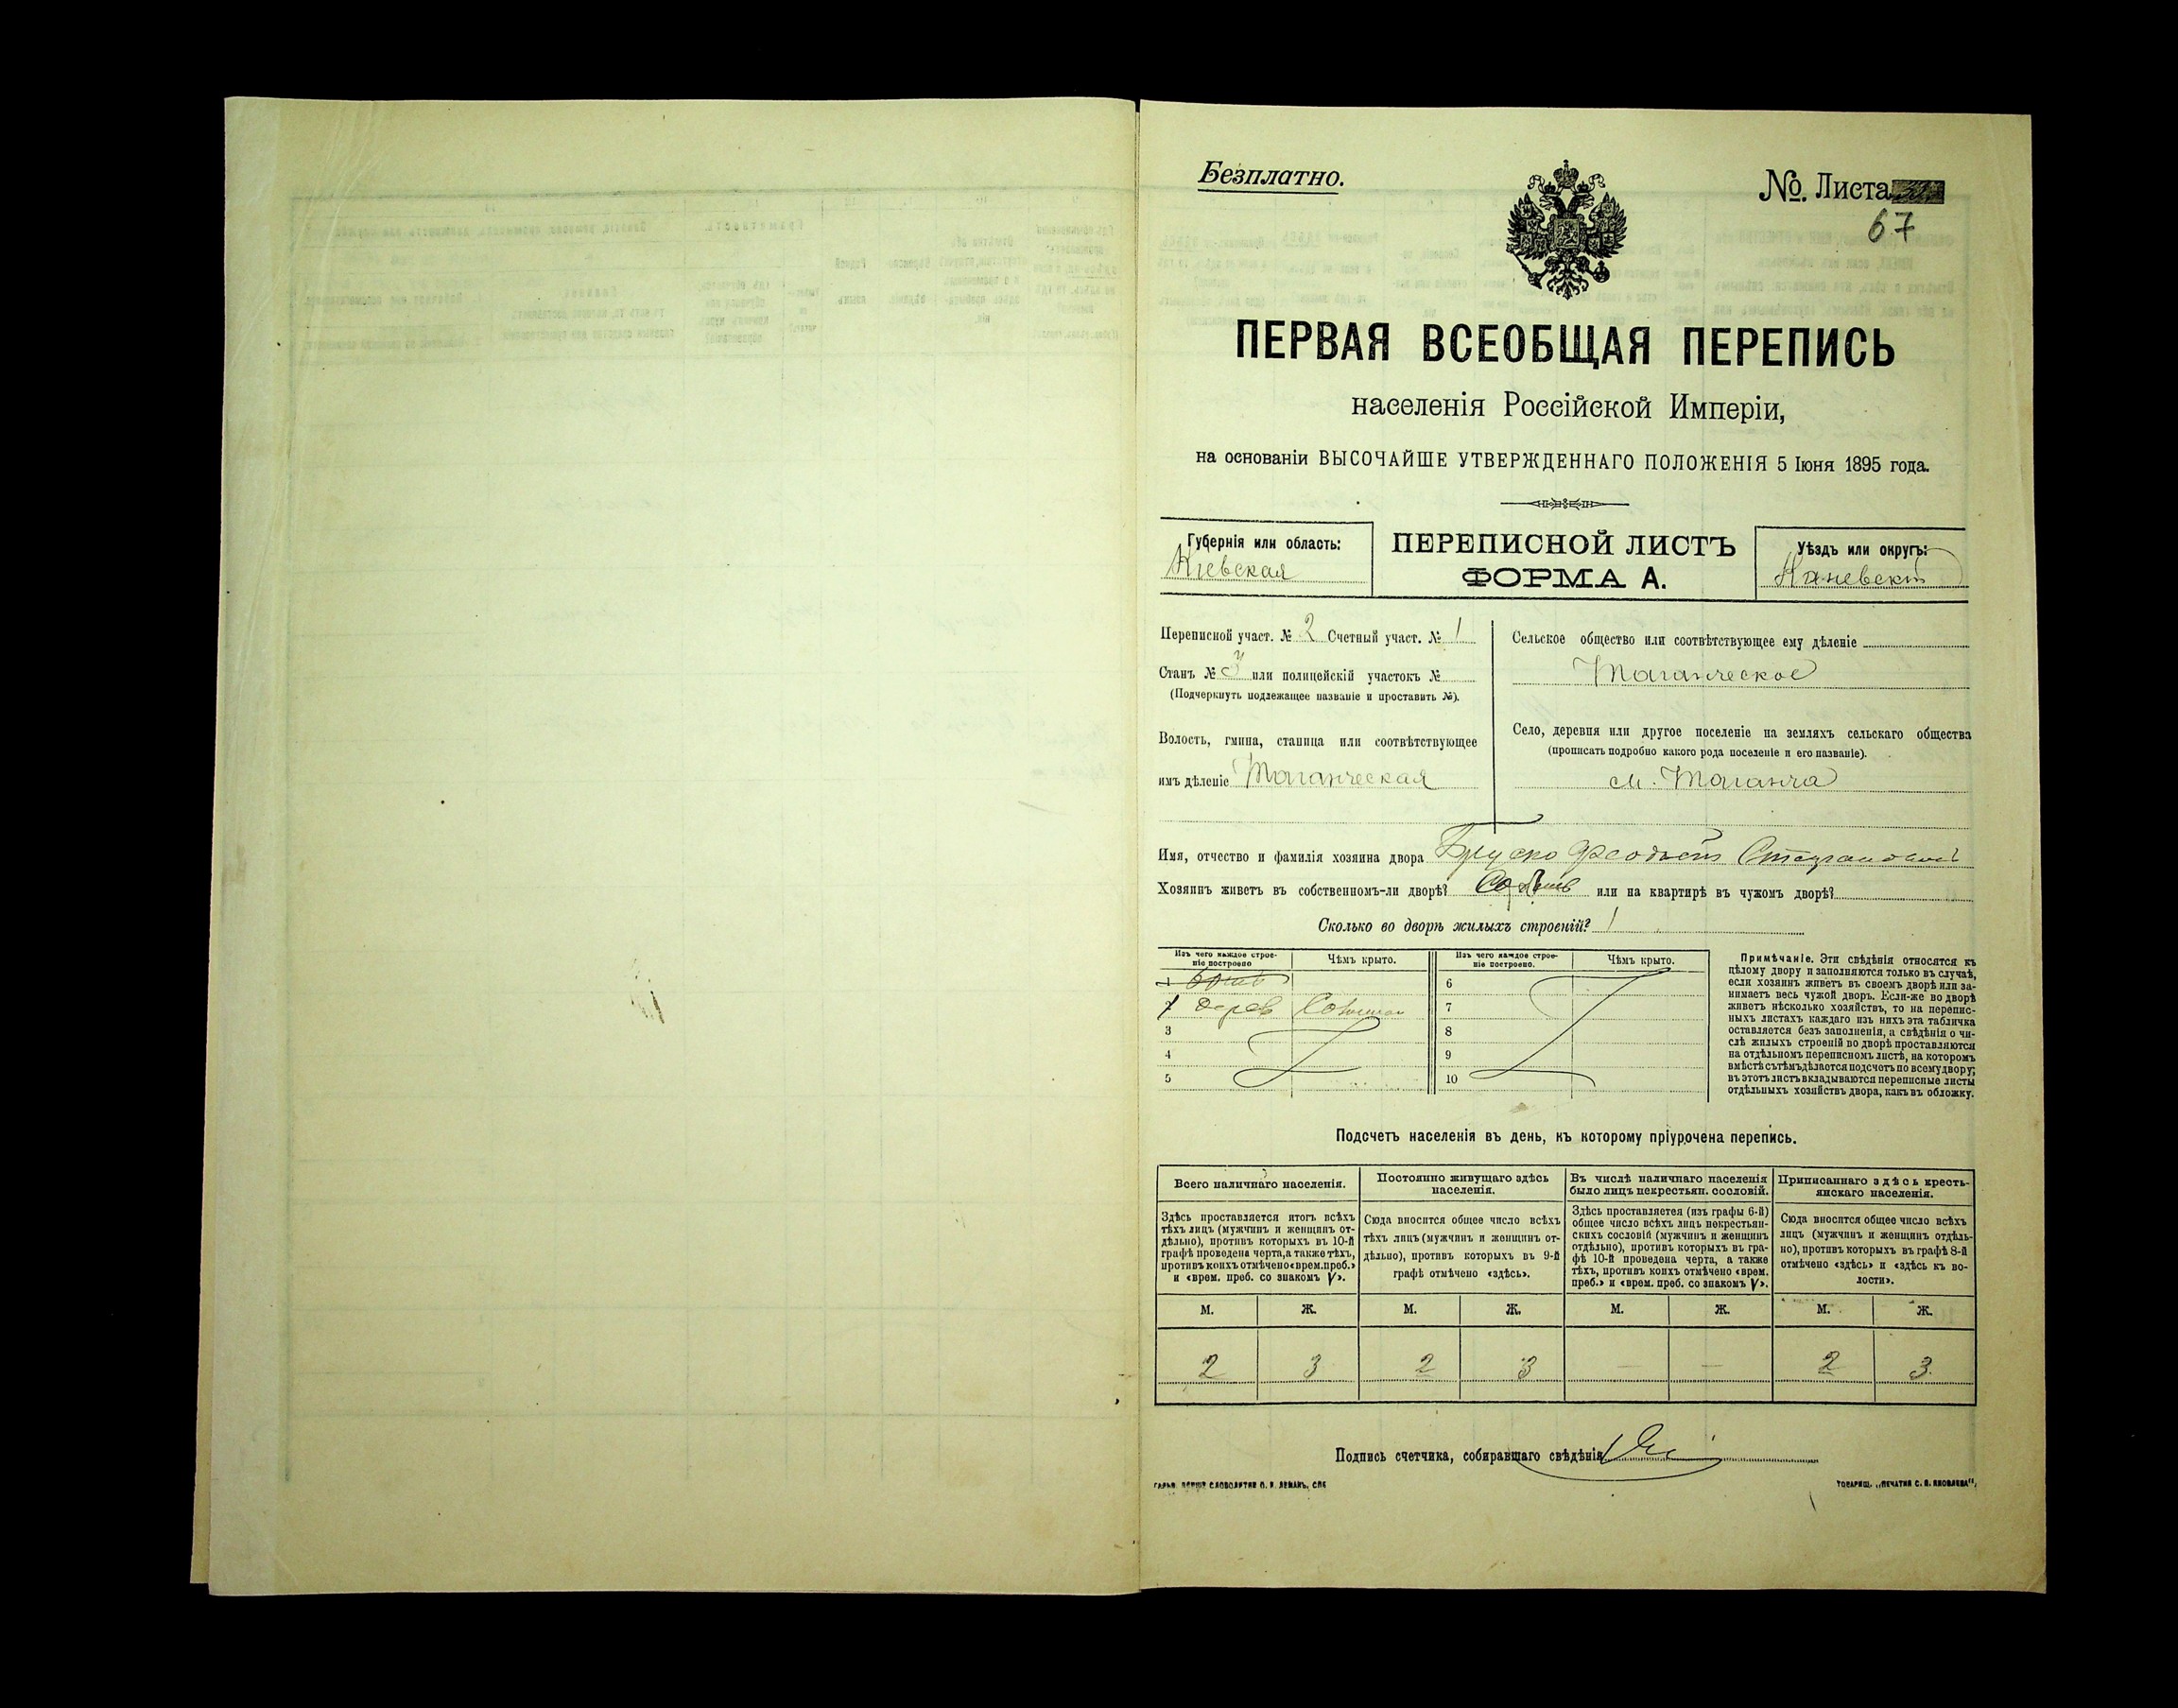 Безплатно.
№. Листа
67
ПЕРВАЯ ВСЕОБЩАЯ ПЕРЕПИСЬ
населенія Россійской Имперіи,
на основаніи ВЫСОЧАЙШЕ УТВЕРЖДЕННАГО ПОЛОЖЕНІЯ 5 Іюня 1895 года.
Губернія или область:
Кіевская
ПЕРЕПИСНОЙ ЛИСТЪ
ФОРМА А.
Уѣздъ или округъ:
Каневскій
Переписной участ. № 2 Счетный участ. № 1
Станъ № 3 или полицейскій участокъ №
(Подчеркнуть подлежащее названіе и проставить №).
Волость, гмина, станица или соотвѣтствующее
имъ дѣленіе Таганческая
Сельское общество или соотвѣтствующее ему дѣленіе
Таганческое
Село, деревня или другое поселеніе на земляхъ сельскаго общества
(прописать подробно какого рода поселеніе и его названіе).
м. Таганча
Имя, отчество и фамилія хозяина двора
Хозяинъ живетъ въ собственномъ-ли дворѣ? или на квартирѣ въ чужомъ дворѣ?
Сколько во дворѣ жилыхъ строеній? 1
Изъ чего каждое строе-
ніе построено
Чѣмъ крыто.
Изъ чего каждое строе-
ніе построено.
Чѣмъ крыто.
1
6
дерев Соломой
7
3
8
4
9
5
10
Примѣчаніе. Эти свѣдѣнія относятся къ
цѣлому двору и заполняются только въ случаѣ,
если хозяинъ живетъ въ своемъ дворѣ или за-
нимаетъ весь чужой дворъ. Если-же во дворѣ
живетъ нѣсколько хозяйствъ, то на перепис-
ныхъ листахъ каждаго изъ нихъ эта табличка
оставляется безъ заполненія, а свѣдѣнія о чи-
слѣ жилыхъ строеній во дворѣ проставляются
на отдѣльномъ переписномъ листѣ, на которомъ
вмѣстѣ съ тѣмъ дѣлается подсчетъ по всему двору;
въ этотъ листъ вкладываются переписные листы
отдѣльныхъ хозяйствъ двора, какъ въ обложку.
Подсчетъ населенія въ день, къ которому пріурочена перепись.
Всего наличнаго населенія.
Здѣсь проставляется итогъ всѣхъ
тѣхъ лицъ (мужчинъ и женщинъ от-
дѣльно), противъ которыхъ въ 10-й
графѣ проведена черта, а также тѣхъ,
противъ коихъ отмѣчено «врем. преб.»
и «врем. преб. со знакомъ V».
Постоянно живущаго здѣсь
населенія.
Сюда вносится общее число всѣхъ
тѣхъ лицъ (мужчинъ и женщинъ от-
дѣльно), противъ которыхъ въ 9-й
графѣ отмѣчено «здѣсь».
Въ числѣ наличнаго населенія
было лицъ некрестьян. сословій.
Здѣсь проставляется (изъ графы 6-й)
общее число всѣхъ лицъ некрестьян-
скихъ сословій (мужчинъ и женщинъ
отдѣльно), противъ которыхъ въ гра-
фѣ 10-й проведена черта, а также
тѣхъ, противъ коихъ отмѣчено «врем.
преб.» и «врем. преб. со знакомъ V».
Приписаннаго здѣсь кресть-
янскаго населенія.
Сюда вносится общее число всѣхъ
лицъ (мужчинъ и женщинъ отдѣль-
но), противъ которыхъ въ графѣ 8-й
отмѣчено «здѣсь» и «здѣсь къ во-
лости».
М. Ж. М. Ж. М. Ж. М. Ж.
2 3 2 3 — — 2 3
Подпись счетчика, собиравшаго свѣдѣнія
СЛОВОЛИТНИ О. И. ЛЕМАНЪ, СПБ
ТОВАРИЩ. „ПЕЧАТНЯ С. П. ЯКОВЛЕВА“